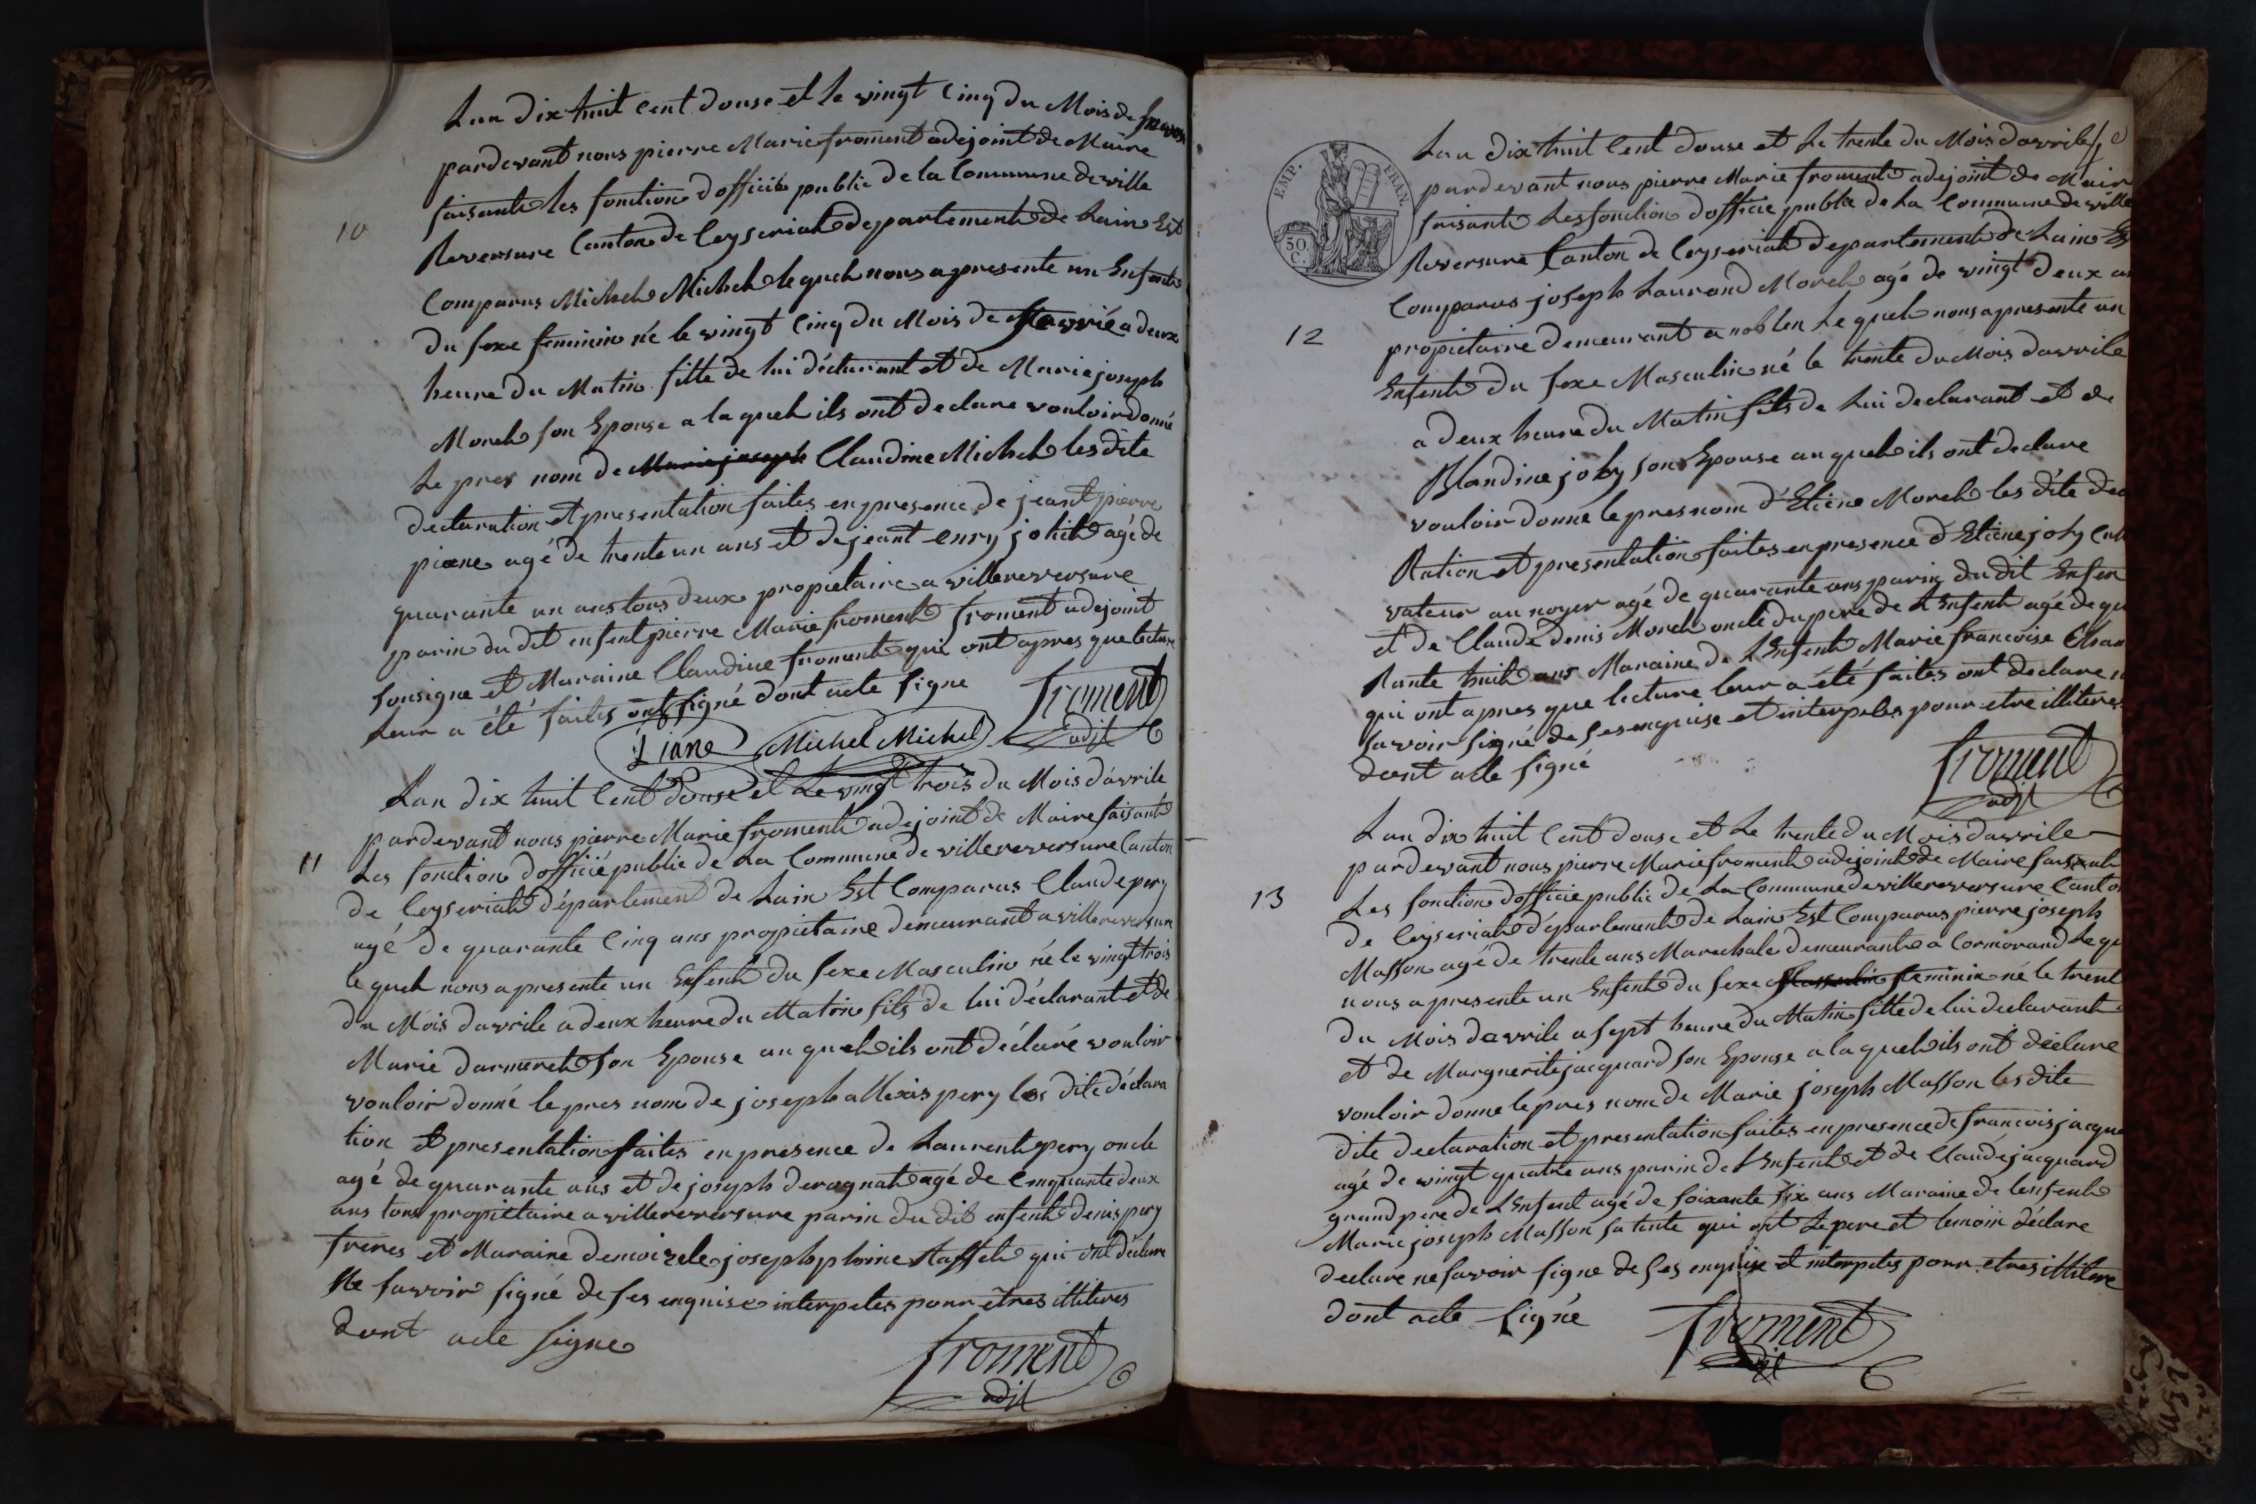 Lan dix huit Cent douse et le vingt Cinq du Mois de
pardevant nous pierre Marie froment adejoint de Maire
10
faisante les fonction dofficié public de la Commune de ville
Reversure Canton de Ceyseriah departement de Lain Est
Comparus Michel Michel le quel nous a presente un Enfant
du sexe feminin né le vingt Cinq du Mois de a deux
heure du Matin fille de lui déclarant et de Marie joseph
Morel son Epouse a la quel ils ont declare vouloir donné
Le pres nom de Marie joseph Claudine Michel les dite
declaration et presentation faites en presence de jeant pierre
piane agé de trente un ans et de jeant enry agé de
quarante un ans tous deux propietaire a villereversure
parin du dit enfent pierre Marie froment froment adejoint
sousigne et Maraine Claudine froment qui ont apres que lecture
Leur a été faites ont signé dont acte signe
froment
adjt
Piane Michel Michel
Lan dix huit Cent douse et Le vingt trois du Mois davrile
pardevant nous pierre Marie froment adejoint de Maire faisante
11
Les fonction dofficié public de La Commune de villereversure Canton
de Ceyseriah département de Lain Est Comparus Claude pery
agé de quarante Cinq ans propietaire demeurant a villereversure
le quel nous a presente un Enfent du sexe Masculin né le vingt trois
du Mois davrile a deux heure du Matin fils de lui déclarant et de
Marie darmerel son Epouse au quel ils ont déclaré vouloir
vouloir donné le pres nom de joseph allexis pery les dite déclara
tion et presentation faites en presence de Laurent pery oncle
agé de quarante ans et de joseph agé de Cinquante deux
ans tous propietaire a villereversure parin du dit enfent denis pery
freres et Maraine demoizele josephphine qui ont déclare
Ne savoir signé de ses enquise interpeles pour êtres illiteres
dont acte signe
froment
adjt
EMP. FRAN.
50 C.
Lan dix huit Cent douse et Le trente du Mois davrile
pardevant nous pierre Marie froment adejoint de Mair
faisante Les fonction dofficie public de La Commune de ville
Reversure Canton de Ceyseriah departement de Lain Es
Comparus joseph Laurand Morel agé de vingt deux a
12
propietaire demeurant a noblen Le quel nous a presente un
Enfent du sexe Masculin né le trente du Mois davrile
a deux heure du Matin fils de Lui declarant et de
Blandine joly son Epouse au quel ils ont declare
vouloir donné le pres nom d'Etiene Morel les dite dec
Ration et presentation faites en presence d'Etiene joly Cul
vateur au noyer agé de quarante ans parin du dit Enfen
et de Claude denis Morel oncle du pere de l'Enfent agé de qu
Rante huit ans Maraine de L'Enfent Marie francoise
qui ont apres que lecture leur a été faites ont declare n
savoir signé de ses enquise et interpeles pour etre illiteres
dont acte signé
froment
adjt
Lan dix huit Cent douse et Le trente du Mois davrile
pardevant nous pierre Marie froment adejoint de Maire faisante
13
Les fonction dofficie public de La Commune de villereversure Canton
de Ceyseriah département de Lain Est Comparus pierre joseph
Masson agé de trente ans Marechale demeurant a Cormorand Le qu
nous a presente un Enfent du sexe Masculin feminin né le trent
du Mois davrile a sept heure du Matin fille de lui declarant
et de Marguerite jacquard son Epouse a la quel ils ont déclare
vouloir donne le pres nom de Marie joseph Masson les dite
dite declaration et presentation faites en presence de francois jacqua
agé de vingt quatre ans parin de L'Enfent et de Claude jacquard
grand pere de L'Enfent agé de soixante six ans Maraine de lenfent
Marie joseph Masson sa tente qui ont Le pere et temoin déclare
declare ne savoir signe de ses enquise et interpeles pour etres illitere
dont acte signé
froment
adjt